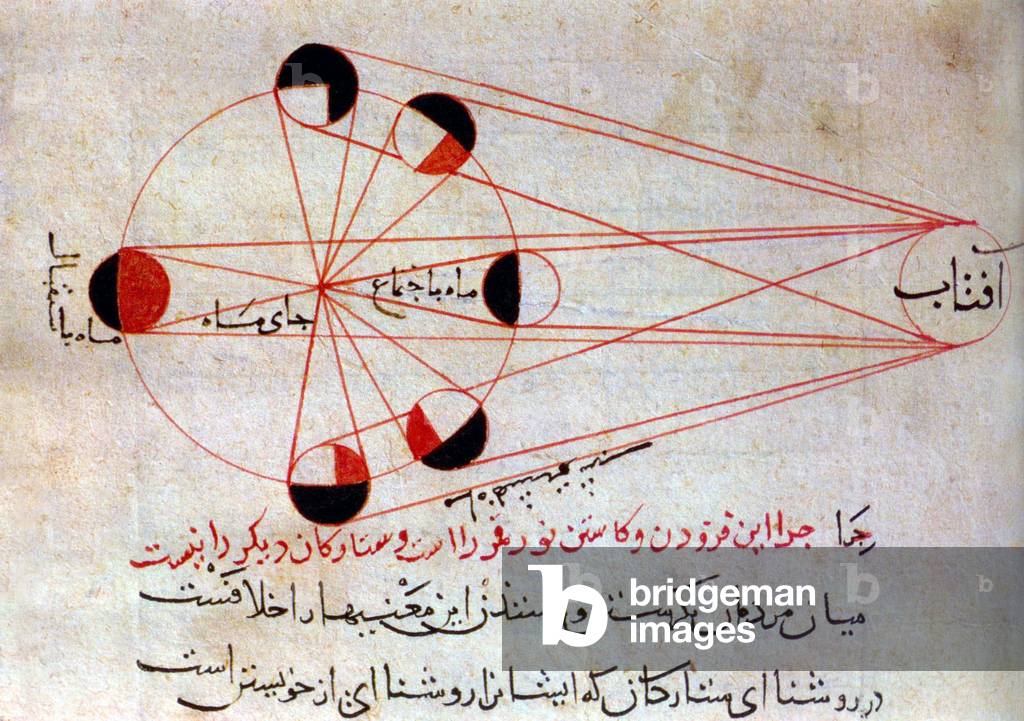 آفتاب
ماه باجتماع
جای ماه
ماه باستقبال
چرا این فزودن و کاستن نور قمر را است و ستارکان دیکر را نیست
میان مردمان این معنیها را خلافست
در روشنا ای ستارکان که ایشانرا روشنا ای از خویشتن است
bridgeman
images